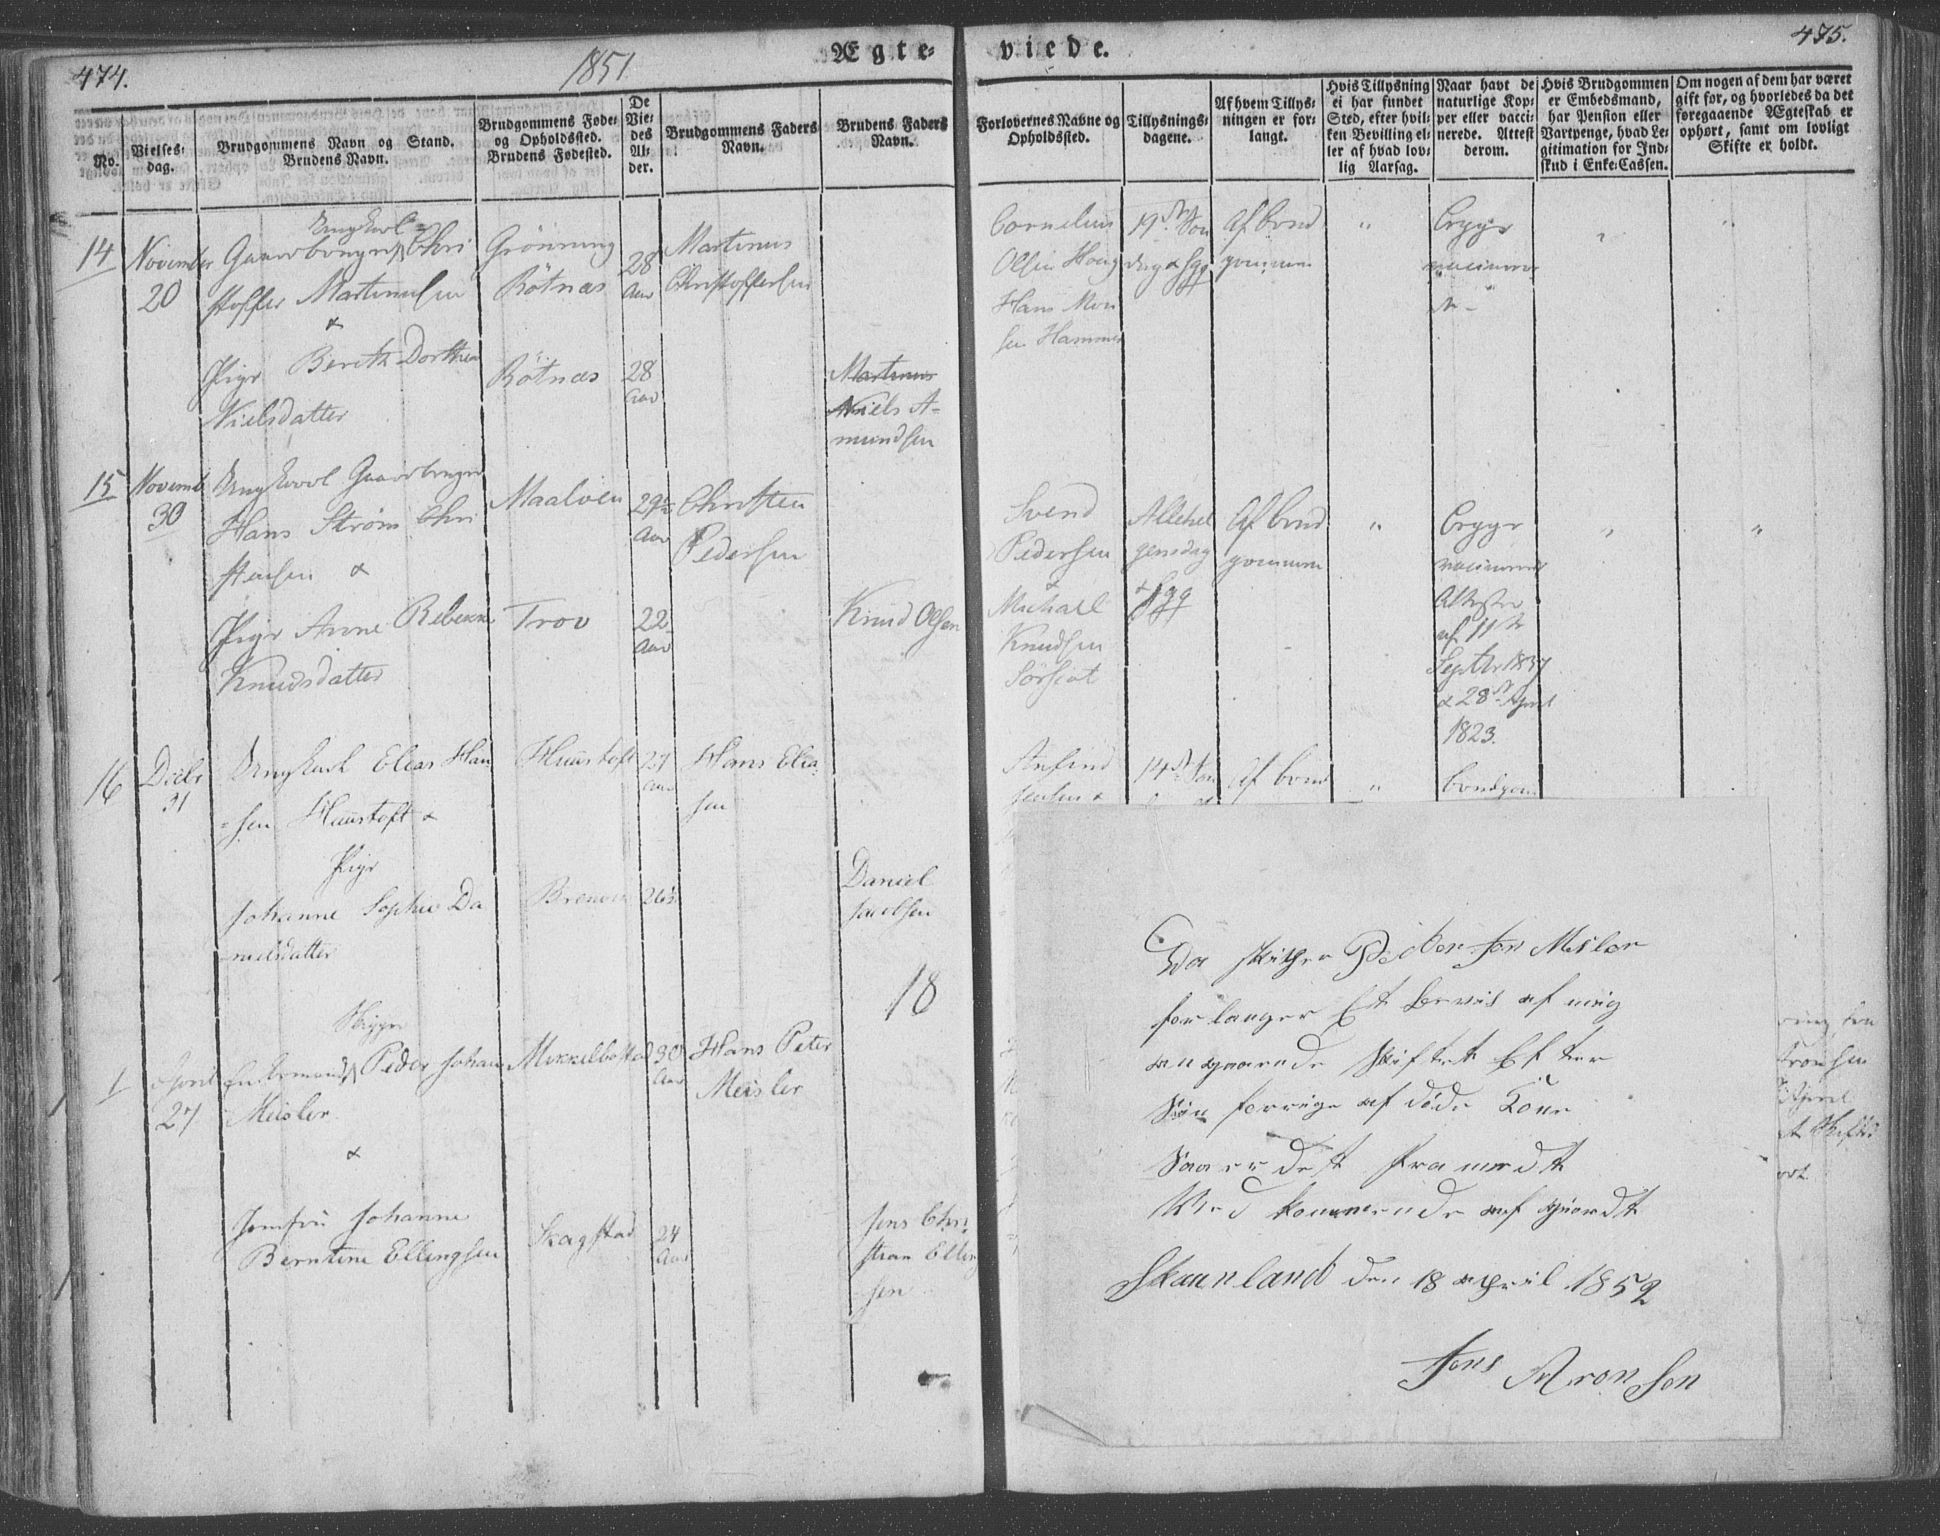 474.
1851
Ægte-
viede.
475.
No.
Vielses-
dag.
Brudgommens Navn og Stand.
Brudens Navn.
Brudgommens Føde-
og Opholdssted.
Brudens Fødested.
De
Vie-
des
Al-
der.
Brudgommens Faders
Navn.
Brudens Faders
Navn.
Forlovernes Navne og
Opholdssted.
Tillysnings-
dagene.
Af hvem Tillys-
ningen er for-
langt.
Hvis Tillysning
ei har fundet
Sted, efter hvil-
ken Bevilling el-
ler af hvad lov-
lig Aarsag.
Naar havt de
naturlige Kop-
per eller vacci-
nerede. Attest
derom.
Hvis Brudgommen
er Embedsmand,
har Pension eller
Vartpenge, hvad Le-
gitimation for Ind-
skud i Enke-Cassen.
Om nogen af dem har været
gift før, og hvorledes da det
foregaaende Ægteskab er
ophørt, samt om lovligt
Skifte er holdt.
14
November
20
Ungkarl
Gaardbruger Chri
stoffer Martinusen
&
Pige Bereth Dorthea
Nielsdatter
Grönning
Rötnæs
Rötnæs
28
Aar
28
Aar
Martinus
Christoffersen
Martinus
Niels A-
mundsen
Cornelius
Olsen Houg
Hans Mon
sen Hammer
19de Søn
dag & fgg
Af brud
gommen
"
Begge
vaccinerede
"
"
15
Novemb
30
Ungkarl Gaardbruger
Hans Strøm Chri
stensen &
Pige Anne Rebekka
Knudsdatter
Maalven
Trov
29½
Aar
22
Aar
Christen
Pedersen
Knud Olsen
Svend
Pedersen
&
Michael
Knudsen
Sörfiat
Allehel
gensdag
& fgg
Af brud
gommen
"
Begge
vaccinerede
Attester
af 11te
Septbr 1837
& 28de April
1823.
"
"
16
Decbr
31
Ungkarl Elias Han
sen Huustoft &
Pige
Johanne Sophie Da
nielsdatter
Huustoft
27
Aar
26½
Hans Elia
sen
Daniel
Jacobsen
Anfind
Jensen &
14de Søn
Af brud
"
brudgom
18
1
April
27
Skipper
Enkemand Peder Johan
Meisler
&
Jomfru Johanne
Berntine Ellingsen
Mikkelbostad
Skagstad
30
Aar
24
Aar
Hans Peter
Meisler
Jens Chri
stian Elling
sen
Da skiper Peder Jon Misler
forlanger Et bevis af mig
angaaende skiftet Efter
sin forrige af döde Kone
saa er det framedt
Ved kommende af giordt
Skaanland den 18 april 1852
Jens Aronsen